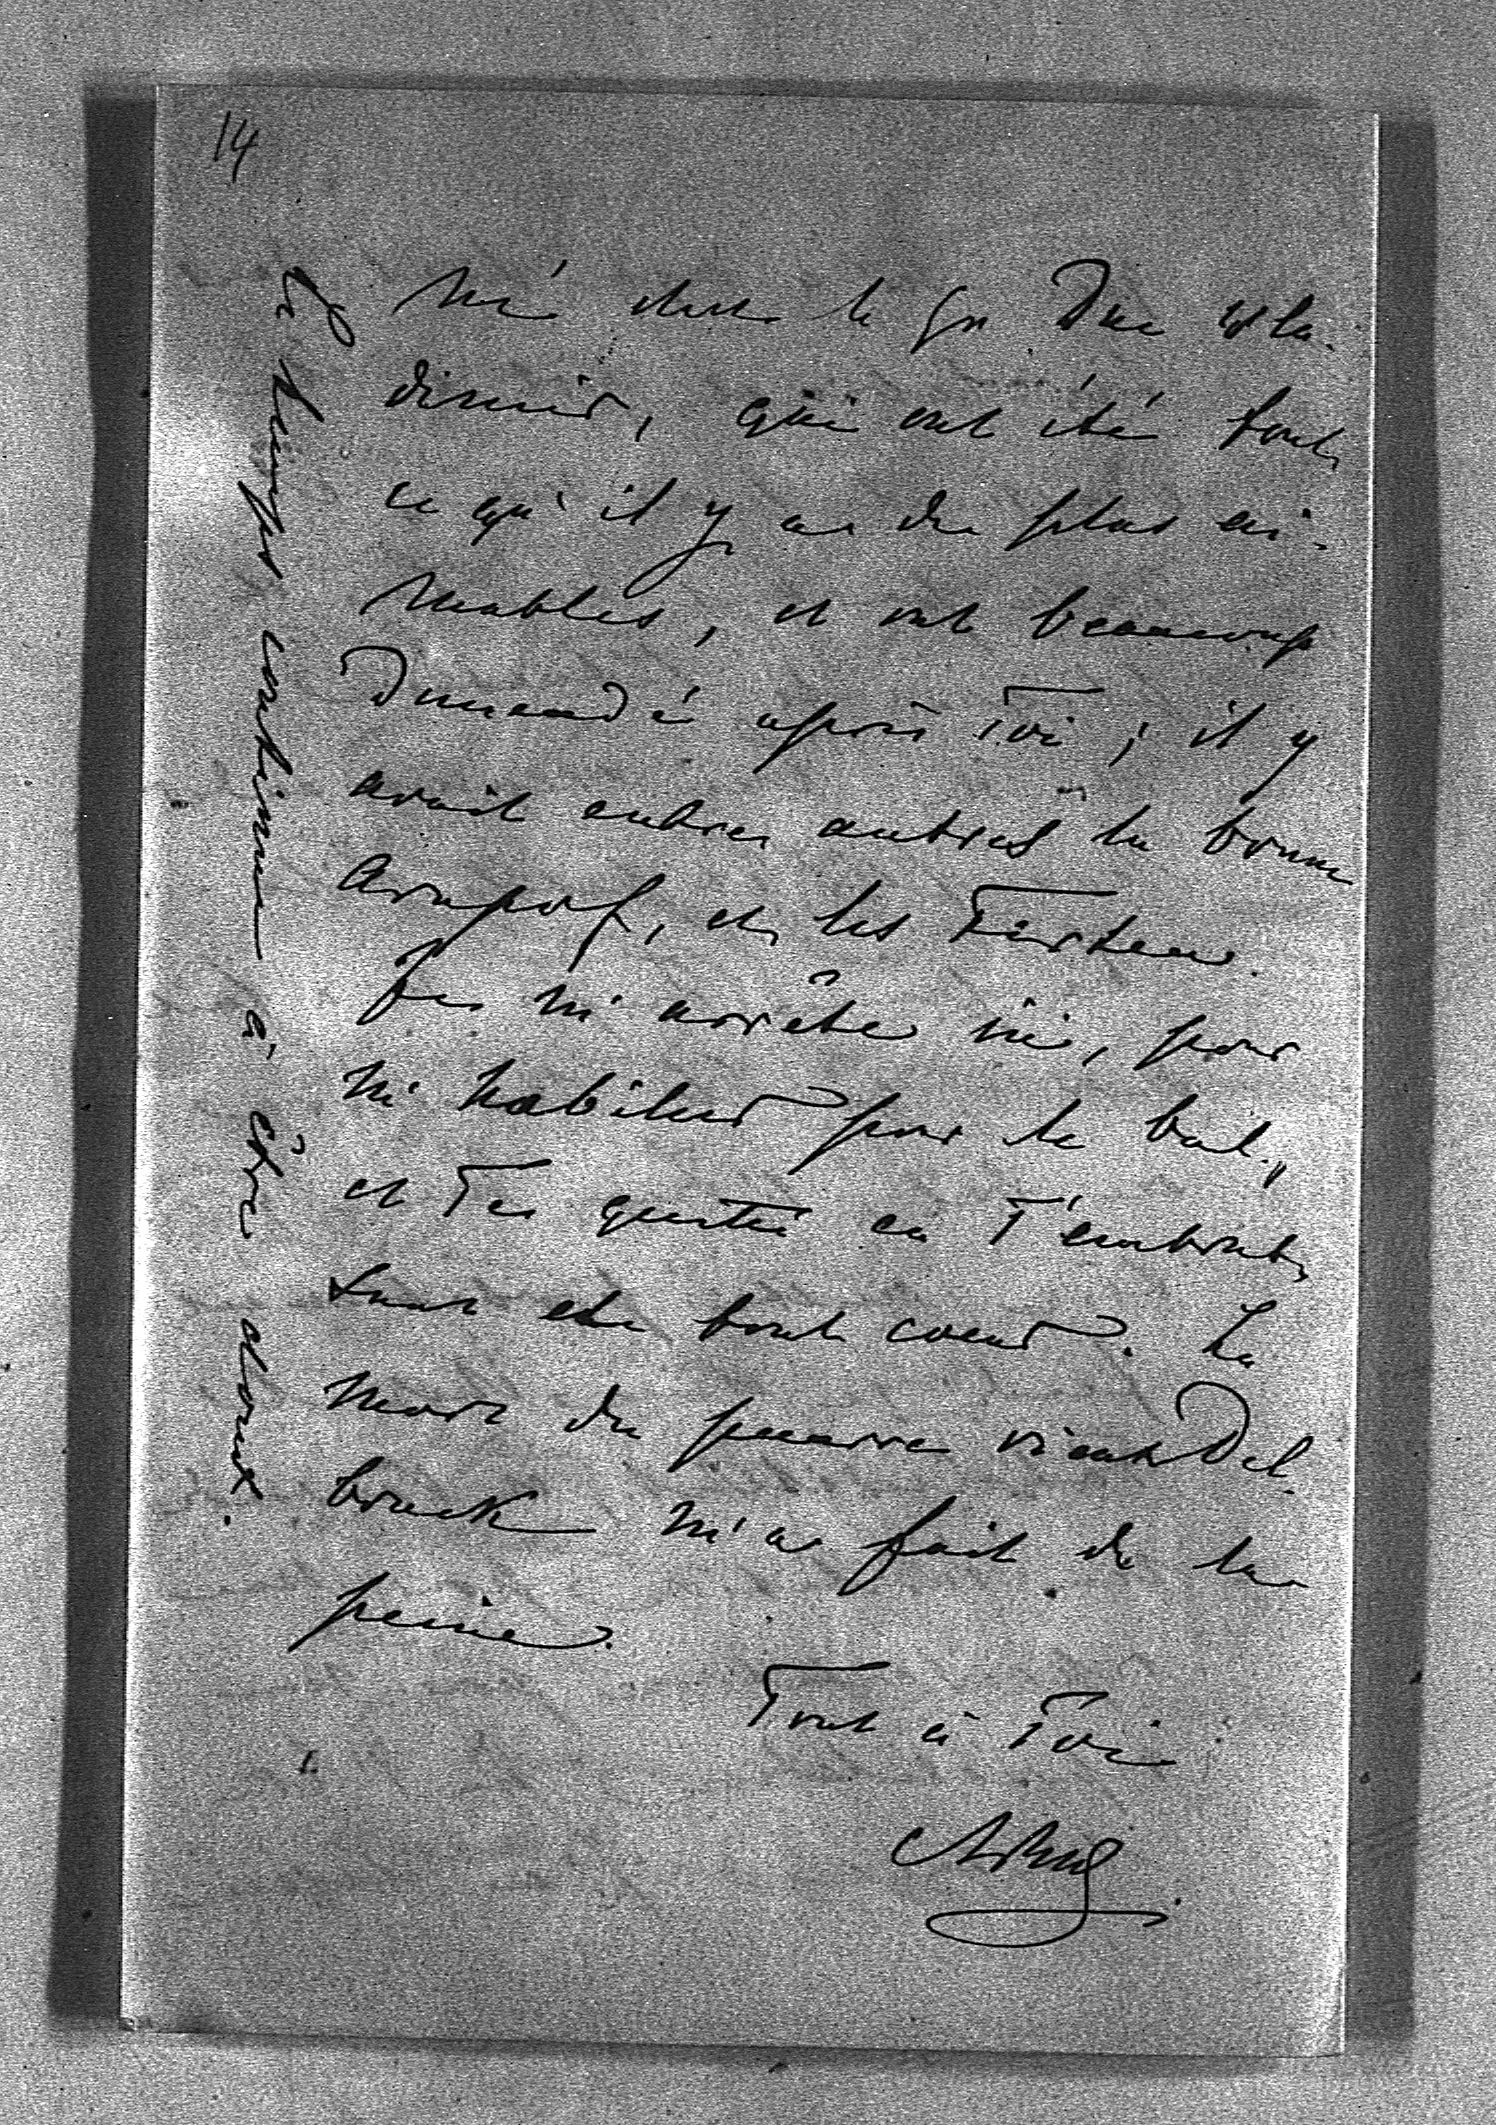 14
né chez le Gr Duc Wla-
dimir, qui ont été tout
ce qu'il y a de plus ai-
mables, et ont beaucoup
demandé après Toi; il y
avait entre autres la bonne
et les
Je m'arrête ici, pour
m'habiller pour le bal,
et Te quitte en T'embras-
sant de tout coeur. La
mort du pauvre vieux Del-
bruck m'a fait de la
peine.
Tout à Toi
Le temps continue à être doux.